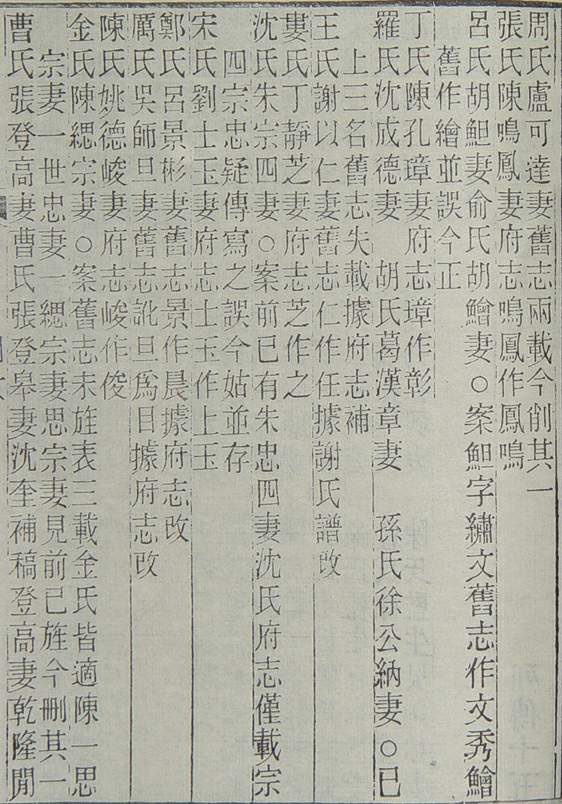 周氏盧可達妻舊志兩載今削其一
張氏陳鳴鳳妻府志鳴鳳作鳳鳴
呂氏胡䱇妻俞氏胡鱠妻○案䱇字繡文舊志作文秀鱠
舊作繪並誤今正
丁氏陳孔璋妻府志璋作彰
羅氏沈成德妻　胡氏葛漢章妻　孫氏徐公納妻○已
上三名舊志失載據府志補
王氏謝以仁妻舊志仁作任據謝氏譜改
婁氏丁靜芝妻府志芝作之
沈氏朱宗四妻○案前已有朱忠四妻沈氏府志僅載宗
四宗忠疑傳寫之誤今姑並存
宋氏劉士玉妻府志士玉作上玉
鄭氏呂景彬妻舊志景作晨據府志改
厲氏吳師旦妻舊志訛旦爲目據府志改
陳氏姚德峻妻府志峻作俊
金氏陳緦宗妻○案舊志未旌表三載金氏皆適陳一思
宗妻一世忠妻一緦宗妻思宗妻見前已旌今刪其一
曹氏張登高妻曹氏張登皋妻沈奎補稿登高妻乾隆閒